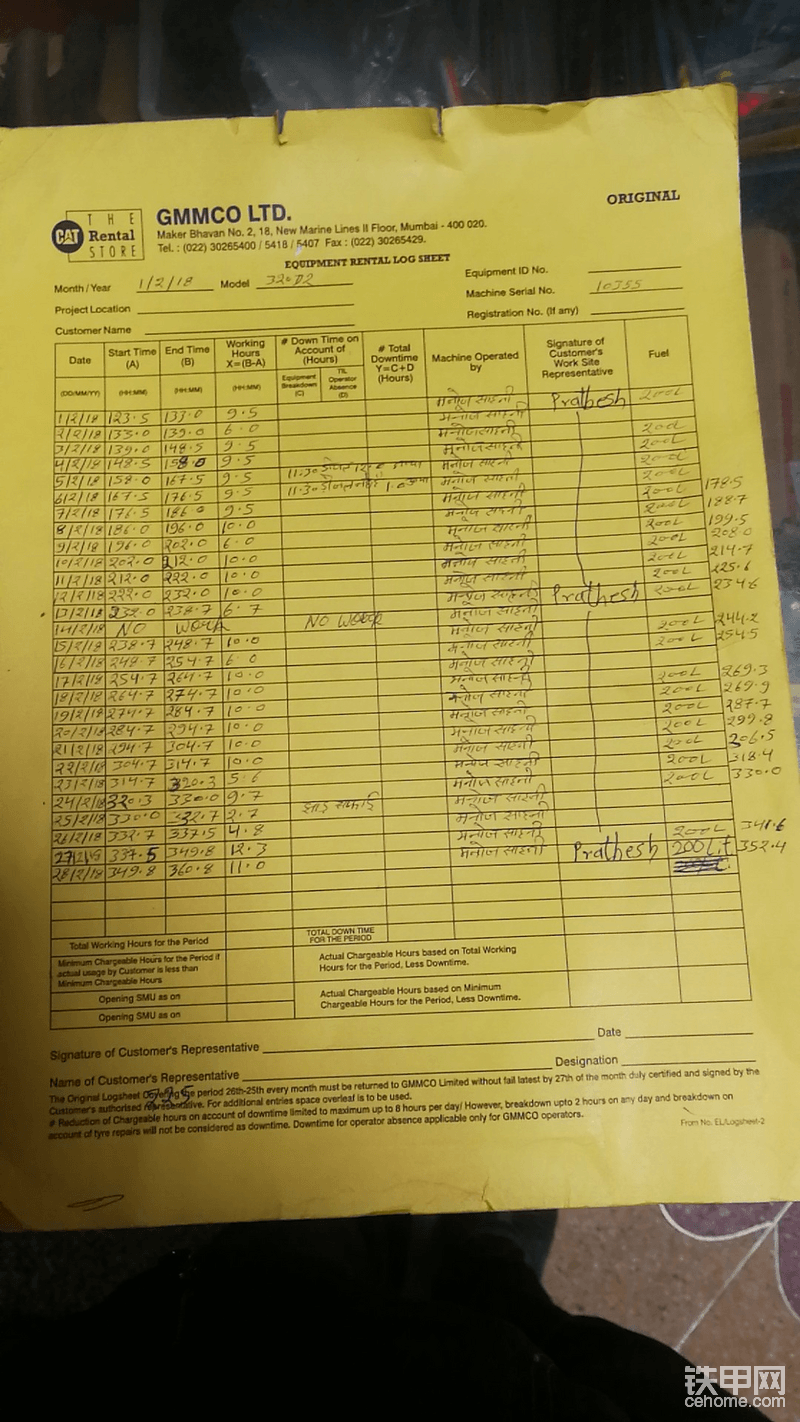 ORIGINAL
THE
CAT Rental
STORE
GMMCO LTD.
Maker Bhavan No. 2, 18, New Marine Lines II Floor, Mumbai - 400 020.
Tel. : (022) 30265400 / 5418 / 5407 Fax : (022) 30265429.
EQUIPMENT RENTAL LOG SHEET
Month / Year 1/2/18 Model 320D2 Equipment ID No.
Machine Serial No. 10355
Project Location Registration No. (If any)
Customer Name
Date Start Time (A) End Time (B) Working Hours X=(B-A) # Down Time on Account of (Hours) # Total Downtime Y=C+D (Hours) Machine Operated by Signature of Customer's Work Site Representative Fuel
(DD/MM/YY) (HH:MM) (HH:MM) (HH:MM) Equipment Breakdown (C) TIL Operator Absence (D)
1/2/18 123.5 133.0 9.5 मनोज साहनी Prathesh 200L
2/2/18 133.0 139.0 6.0 मनोज साहनी
3/2/18 139.0 148.5 9.5 मनोज साहनी 200L
4/2/18 148.5 158.0 9.5 मनोज साहनी 200L
5/2/18 158.0 167.5 9.5 11.30 मनोज साहनी 200L
6/2/18 167.5 176.5 9.5 11.30 मनोज साहनी 200L 178.5
7/2/18 176.5 186.0 9.5 मनोज साहनी 200L 188.7
8/2/18 186.0 196.0 10.0 मनोज साहनी 200L 199.5
9/2/18 196.0 202.0 6.0 मनोज साहनी 200L 208.0
10/2/18 202.0 212.0 10.0 मनोज साहनी 200L 214.7
11/2/18 212.0 222.0 10.0 मनोज साहनी 200L 225.6
12/2/18 222.0 232.0 10.0 मनोज साहनी Prathesh 200L 234.6
13/2/18 232.0 238.7 6.7 मनोज साहनी
14/2/18 NO WORK NO WORK मनोज साहनी
15/2/18 238.7 248.7 10.0 मनोज साहनी 200L 244.2
16/2/18 248.7 254.7 6.0 मनोज साहनी 200L 254.5
17/2/18 254.7 264.7 10.0 मनोज साहनी
18/2/18 264.7 274.7 10.0 मनोज साहनी 200L 269.3
19/2/18 274.7 284.7 10.0 मनोज साहनी 200L 269.9
20/2/18 284.7 294.7 10.0 मनोज साहनी 200L 287.7
21/2/18 294.7 304.7 10.0 मनोज साहनी 200L 299.8
22/2/18 304.7 314.7 10.0 मनोज साहनी 200L 306.5
23/2/18 314.7 320.3 5.6 मनोज साहनी 200L 318.4
24/2/18 320.3 330.0 9.7 मनोज साहनी 200L 330.0
25/2/18 330.0 332.7 2.7 मनोज साहनी
26/2/18 332.7 337.5 4.8 मनोज साहनी 200L 341.6
27/2/18 337.5 349.8 12.3 मनोज साहनी Prathesh 200 Lit 352.4
28/2/18 349.8 360.8 11.0
Total Working Hours for the Period TOTAL DOWN TIME FOR THE PERIOD
Minimum Chargeable Hours for the Period if actual usage by Customer is less than Minimum Chargeable Hours
Actual Chargeable Hours based on Total Working Hours for the Period, Less Downtime.
Opening SMU as on
Actual Chargeable Hours based on Minimum Chargeable Hours for the Period, Less Downtime.
Opening SMU as on
Signature of Customer's Representative Date
Name of Customer's Representative Designation
The Original Logsheet period 26th-25th every month must be returned to GMMCO Limited without fail latest by 27th of the month duly certified and signed by the
Customer's authorised representative. For additional entries space overleaf is to be used.
# Reduction of Chargeable hours on account of downtime limited to maximum up to 8 hours per day/ However, breakdown upto 2 hours on any day and breakdown on
account of tyre repairs will not be considered as downtime. Downtime for operator absence applicable only for GMMCO operators.
From No. EL/Logsheet-2
铁甲网
cehome.com